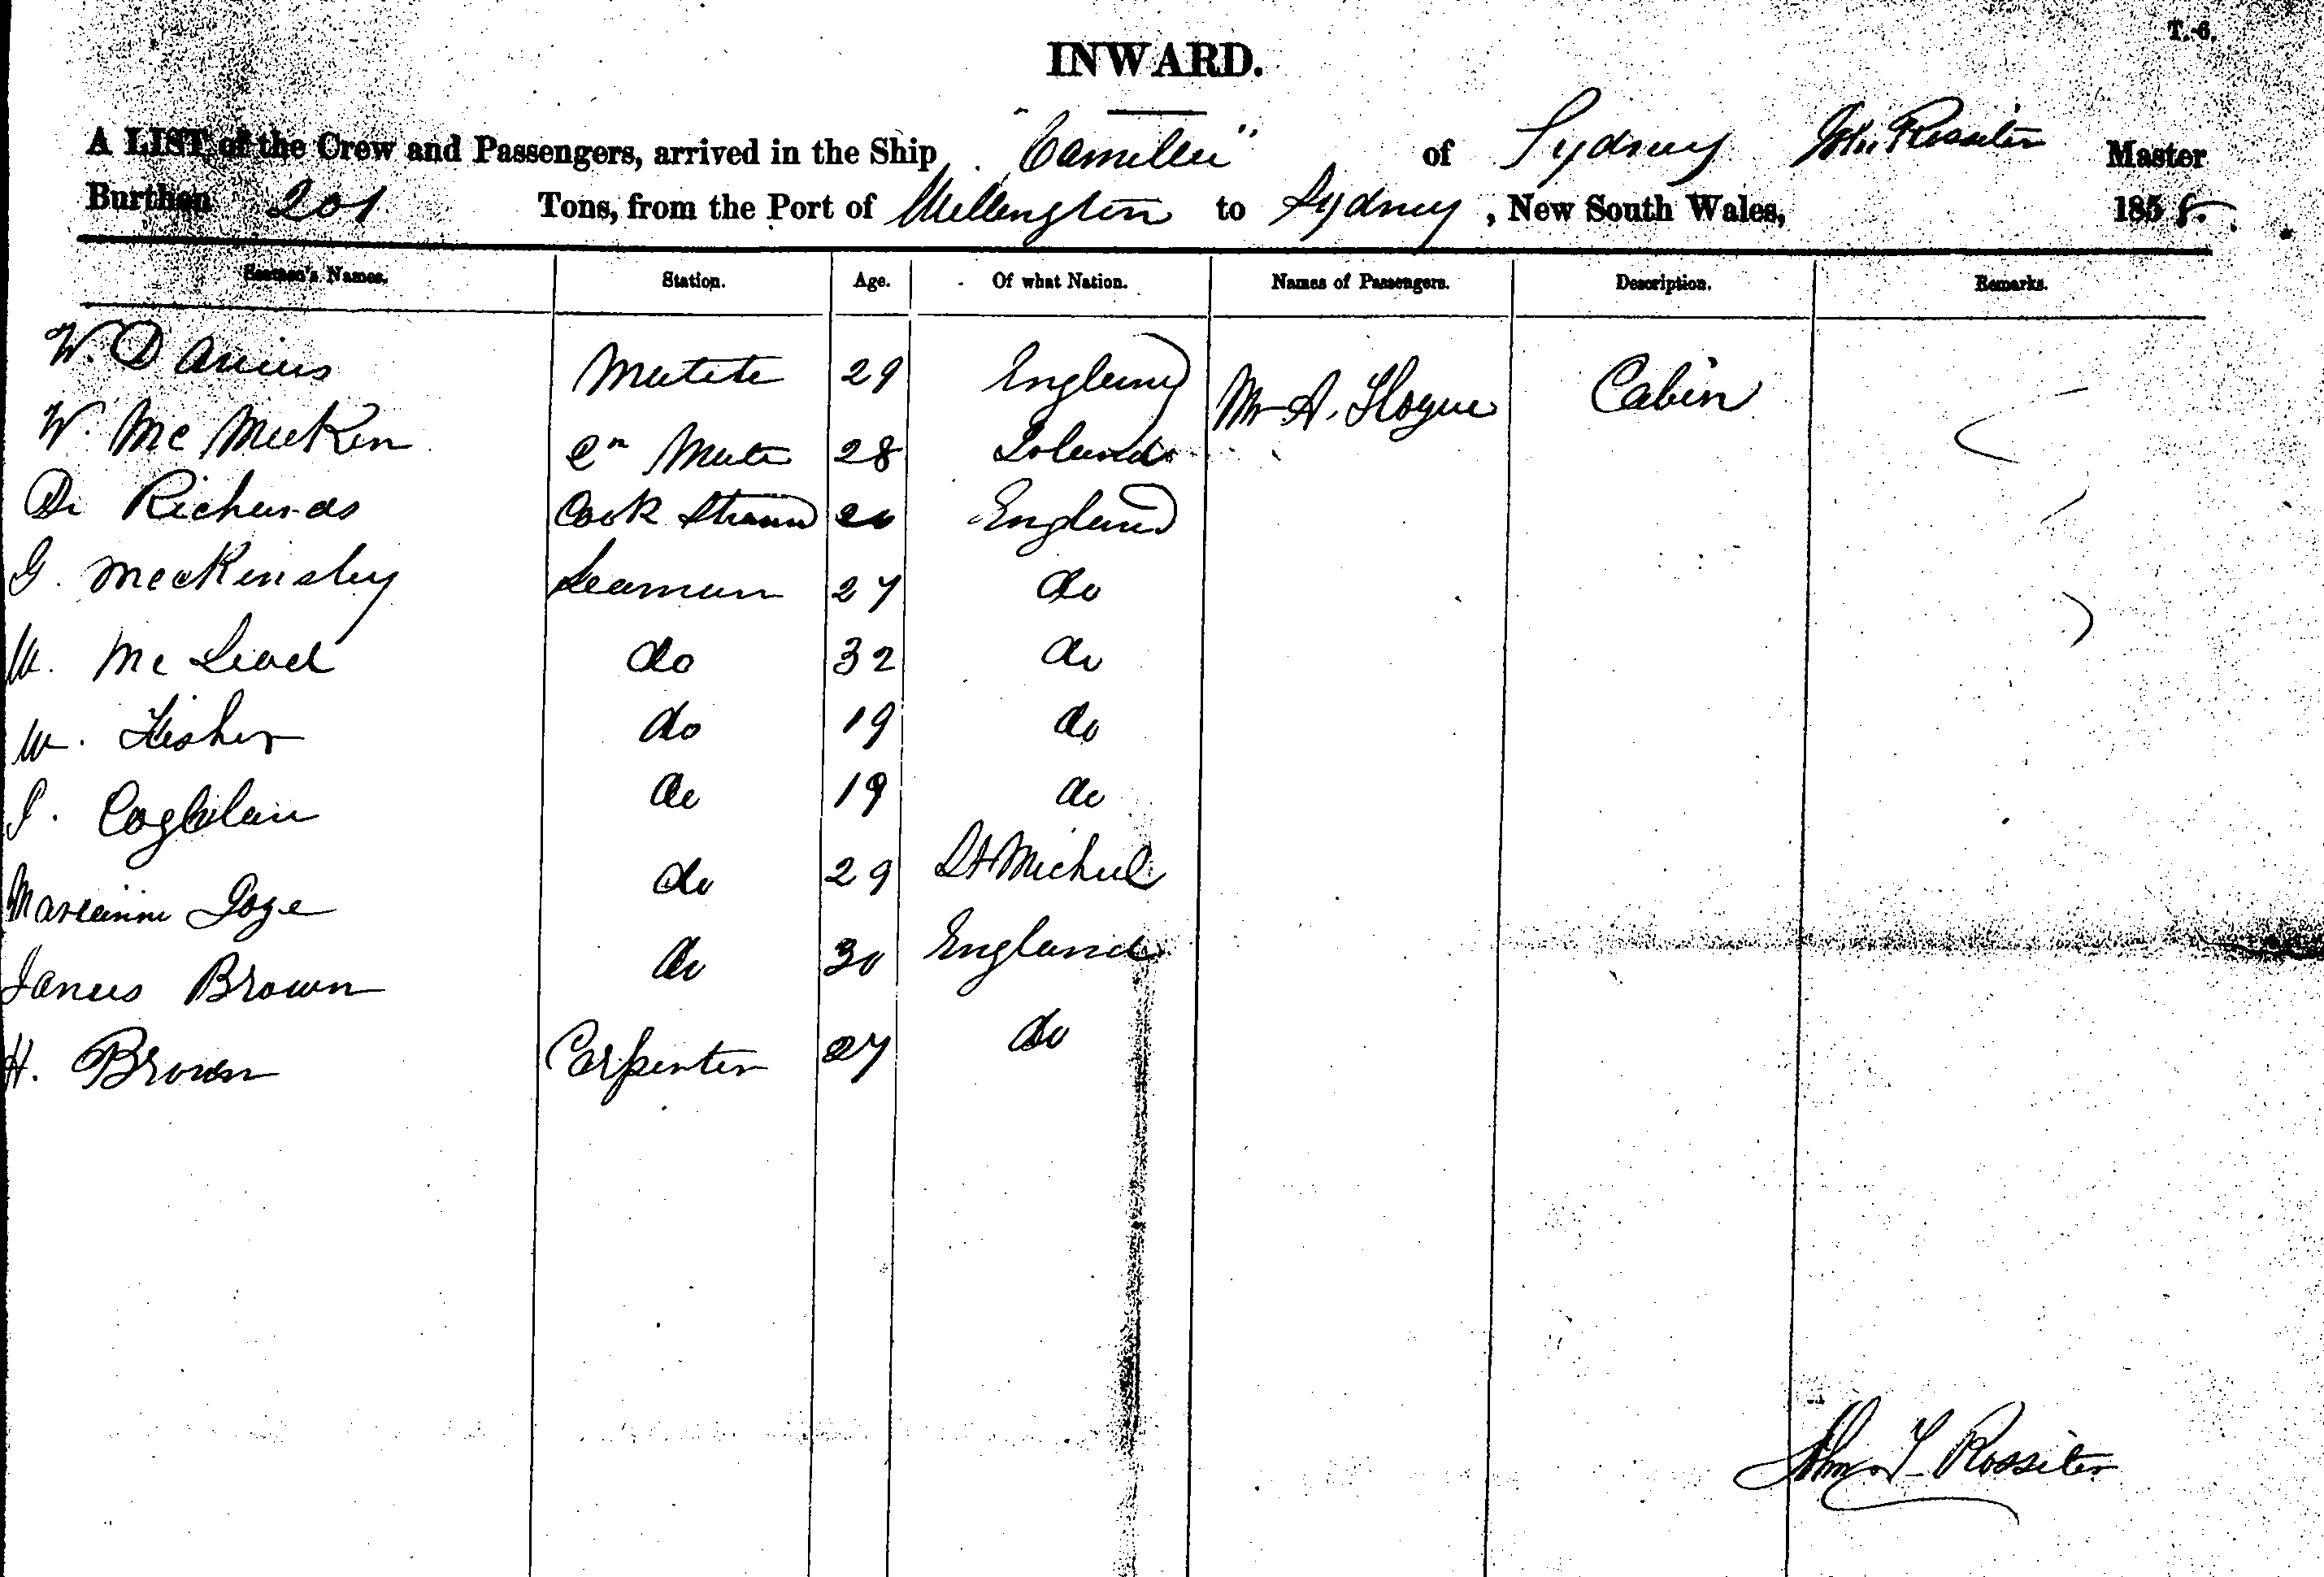 T.-6.
INWARD.
A LIST of the Crew and Passengers, arrived in the Ship "Camilla" of Sydney Jno. Rossiter Master
Burthen 201 Tons, from the Port of Wellington to Sydney, New South Wales, 185
Seamen's Names. Station. Age. Of what Nation. Names of Passengers. Description. Remarks.
W. Mate 29 England Mr A. Hogue Cabin
W. Mc Meeken 2n Mate 28
D. Richards Cook 20 England
G. Seaman 27 do
W. Mc Leod do 32 do
W. Fisher do 19 do
Coghlan do 19 do
do 29 St Michael
James Brown do 30 England
H. Brown Carpenter 27 do
John T Rossiter